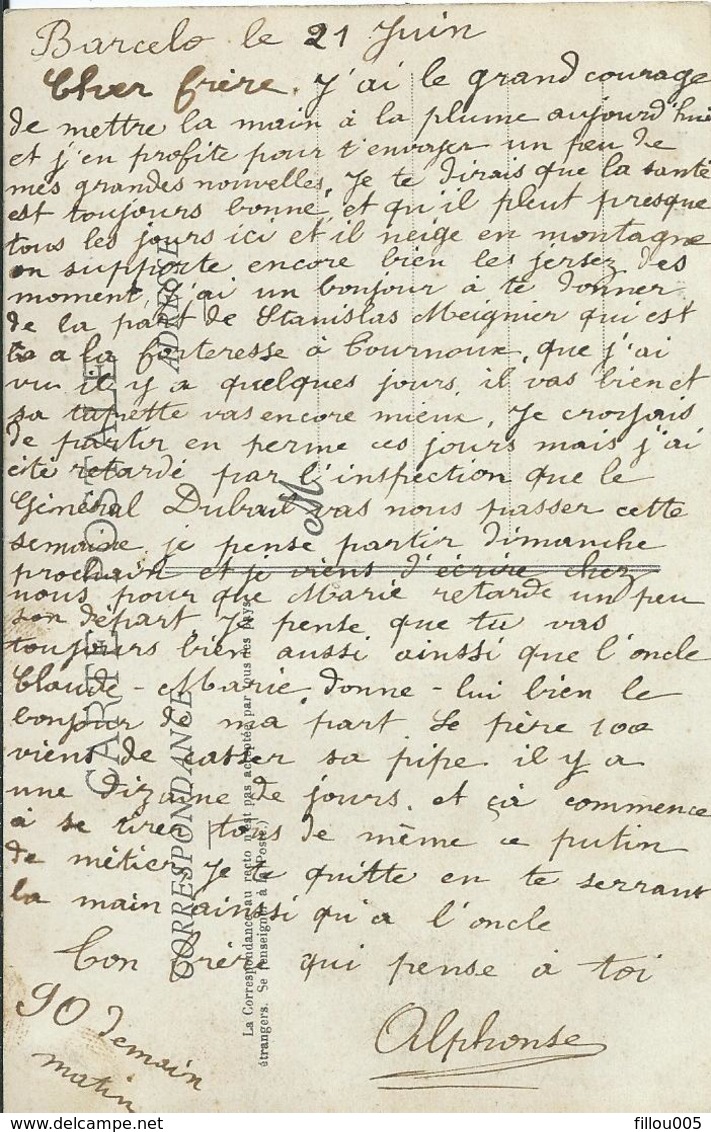 Barcelo le 21 Juin
Cher frère. J'ai le grand courage
de mettre la main à la plume aujourd'hui
et j'en profite pour t'envoyer un peu de
mes grandes nouvelles. Je te dirais que la santé
est toujours bonne, et qu'il pleut presque
tous les jours ici et il neige en montagne
on supporte encore bien les jersez des
moment, j'ai un bonjour à te donner
de la part de Stanislas Meignier qui est
a la forteresse à Tournoux, que j'ai
vu il y a quelques jours, il vas bien et
sa tapette vas encore mieux. Je croyais
de partir en perme ces jours mais j'ai
été retardé par l'inspection que le
Général Dubail vas nous passer cette
semaine, je pense partir dimanche
prochain et je viens d'écrire chez
nous pour que Marie retarde un peu
son départ Je pense que tu vas
toujours bien aussi ainsi que l'oncle
Claude-Marie, donne-lui bien le
bonjour de ma part Le père 100
viens de casser sa pipe. il y a
une dizaine de jours. et çà commence
à se tirer tous de même ce putin
de métier Je te quitte en te serrant
la main ainsi qu'a l'oncle
Ton frère qui pense à toi
Alphonse
90 demain
matin
CARTE POSTALE
CORRESPONDANCE
ADRESSE
M
La Correspondance au recto n'est pas acceptée par tous les pays
étrangers. Se renseigner à la Poste.)
http://www.delcampe.net
fillou005